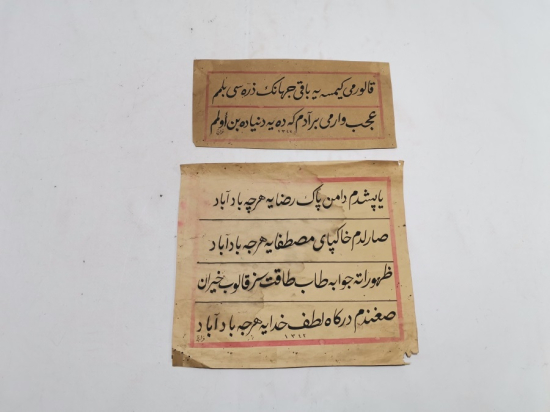 قالورمی کیمسه یه باقی جهانک ذره سی بلمم
عجب وارمی بر آدم که ده یه دنیاده بن اولمم
یاپشدم دامن پاک رضایه هرچه باد آباد
صارلدم خاکپای مصطفایه هرچه باد آباد
ظهوراته جوابه طاب طاقت سز قالوب خیران
صغندم درکاه لطف خدایه هرچه باد آباد
١٣١١